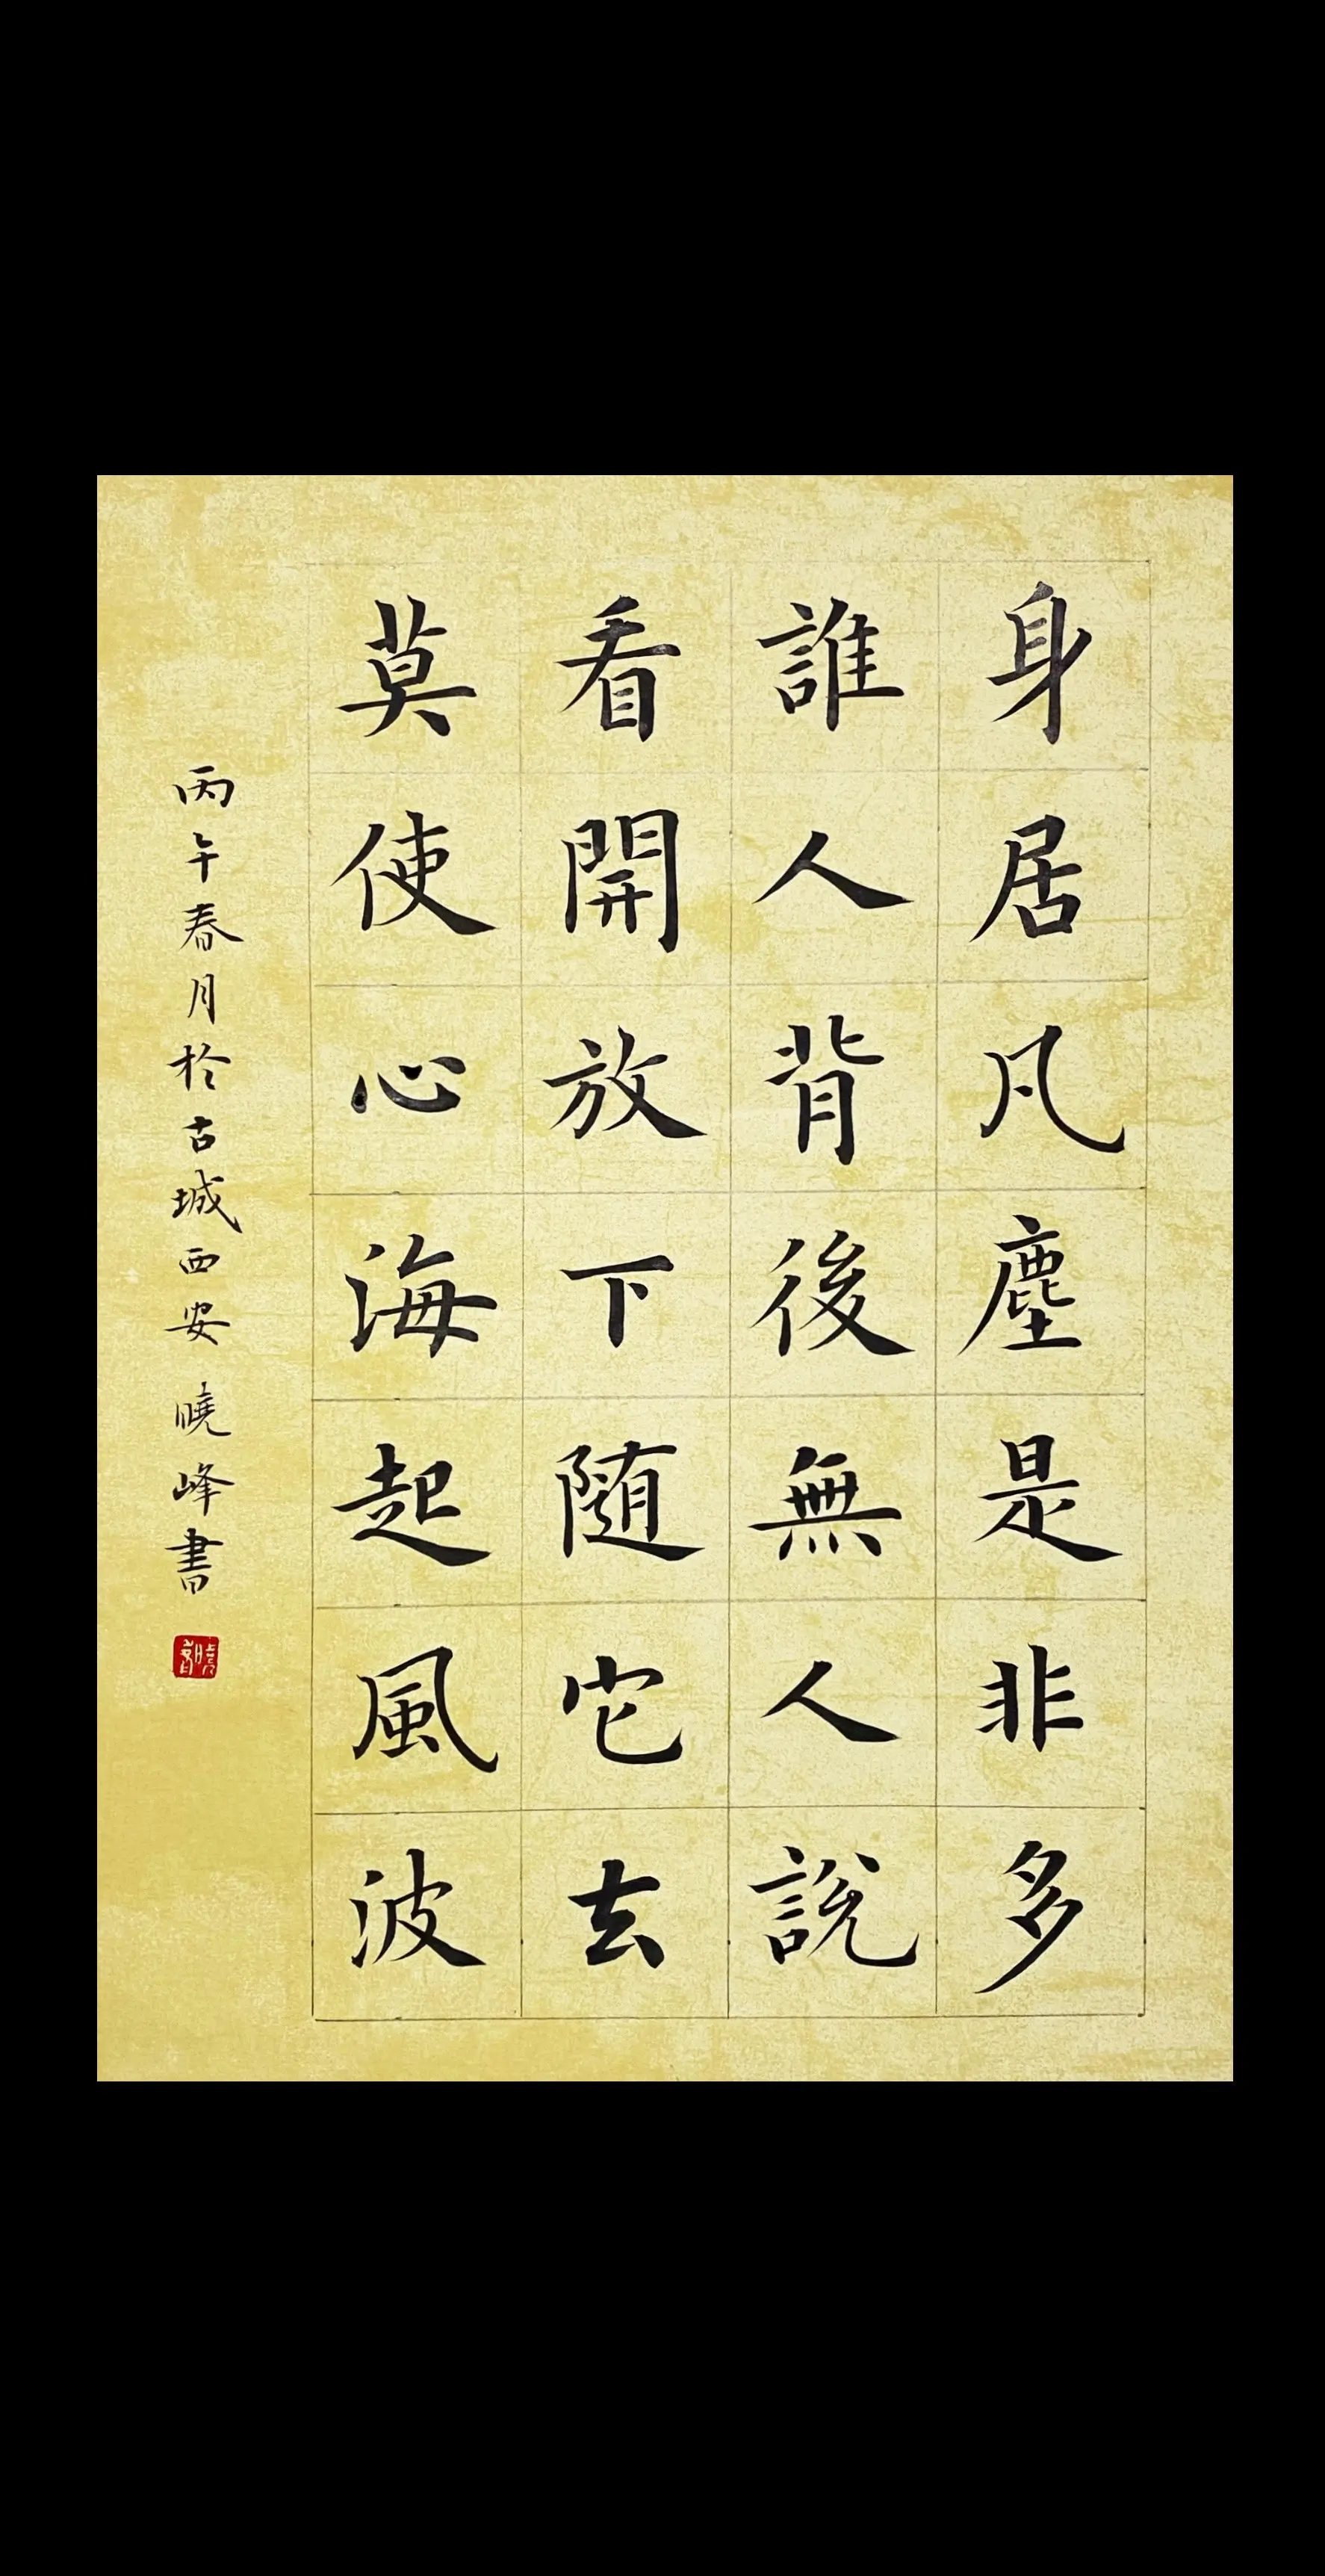 身居凡塵是非多
誰人背後無人說
看開放下随它去
莫使心海起風波
丙午春月於古城西安 曉峰書